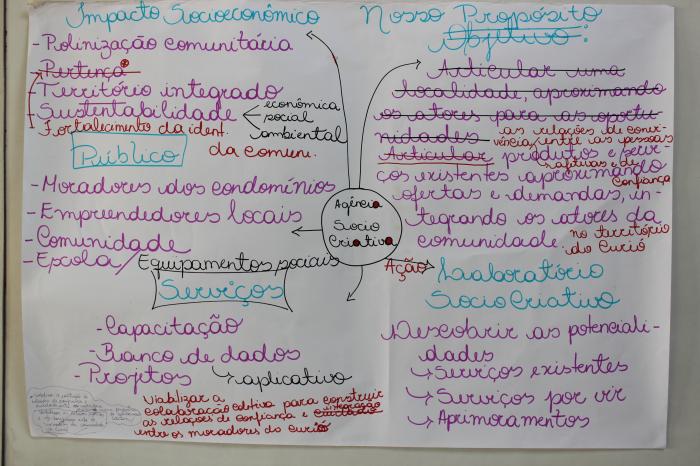 Impacto Socioeconômico
- Polinização comunitária
- Pertença
- Território integrado
- Sustentabilidade
econômica
social
ambiental
Fortalecimento da ident.
da comuni.
Público
- Moradores dos condomínios
- Empreendedores locais
- Comunidade
- Escola / Equipamentos sociais
Serviços
- Capacitação
- Banco de dados
- Projetos → aplicativo
Viabilizar a
colaboração coletiva para construir
as relações de confiança e integração
entre os moradores do Curió
Agência
Socio
Criativa
Nosso Propósito
Objetivo:
Articular uma
localidade, aproximando
os atores para as oportu-
nidades as relações de convi-
vência, entre as pessoas
Articular produtos e servi-
afetivas e de
ços existentes aproximando
confiança
ofertas e demandas, in-
tegrando os atores da
comunidade. no território
do Curió
Ação
Laboratório
SocioCriativo
Descobrir as potenciali-
dades
→ Serviços existentes
→ Serviços por vir
→ Aprimoramentos